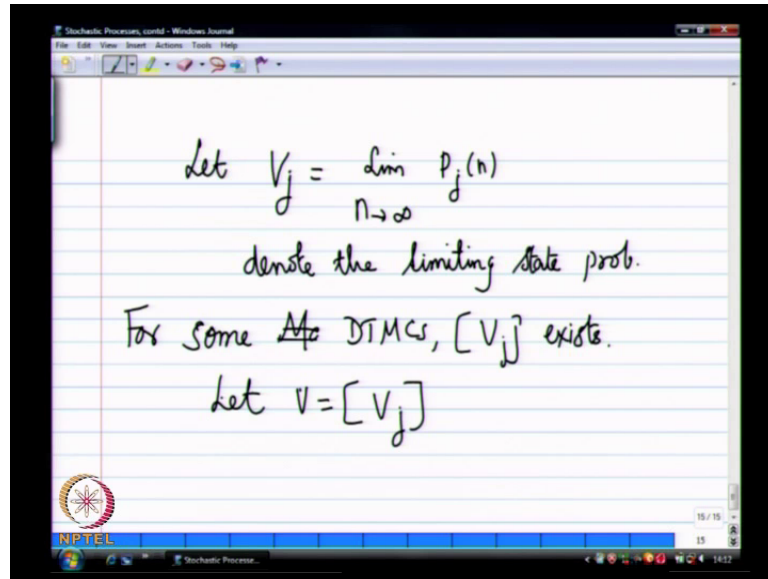 Stochastic Processes, contd - Windows Journal
File Edit View Insert Actions Tools Help
Let V_j = Lim P_j(n)
n→∞
denote the limiting state prob.
For some DTMCs, [V_j] exists.
Let V = [V_j]
15/15
NPTEL
15
Stochastic Processe...
14:12